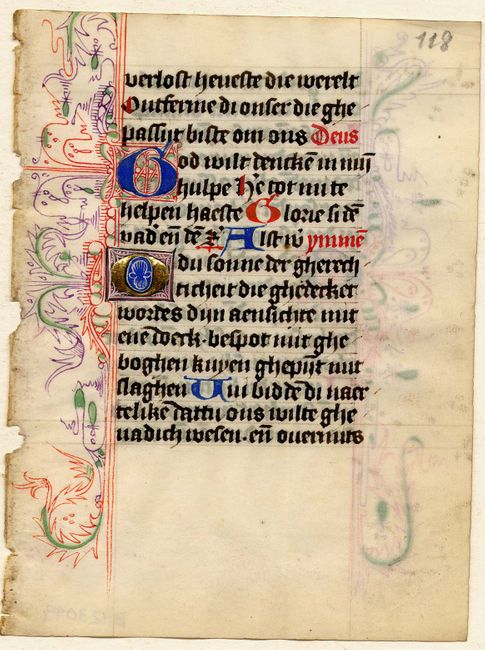 118
verlost heueste die werelt
Ontferme di onser die ghe
passijt biste om ons Deus
God wilt dencke͞ in mij͞
hulpe He͞ tot mi te
helpen haeste Glorie si de͞
vad͛ en͞ de͞ Alst w͛ ymme͞
O du sonne der gherech
ticheit die ghedecket
wordes dijn aensichte mit
ene͞ doeck · bespot mit ghe
boghen knyen ghepijt mit
slaghen Wi bidde͞ di naer
telike dattu ons wilte ghe
nadich wesen · en͞ ouermits